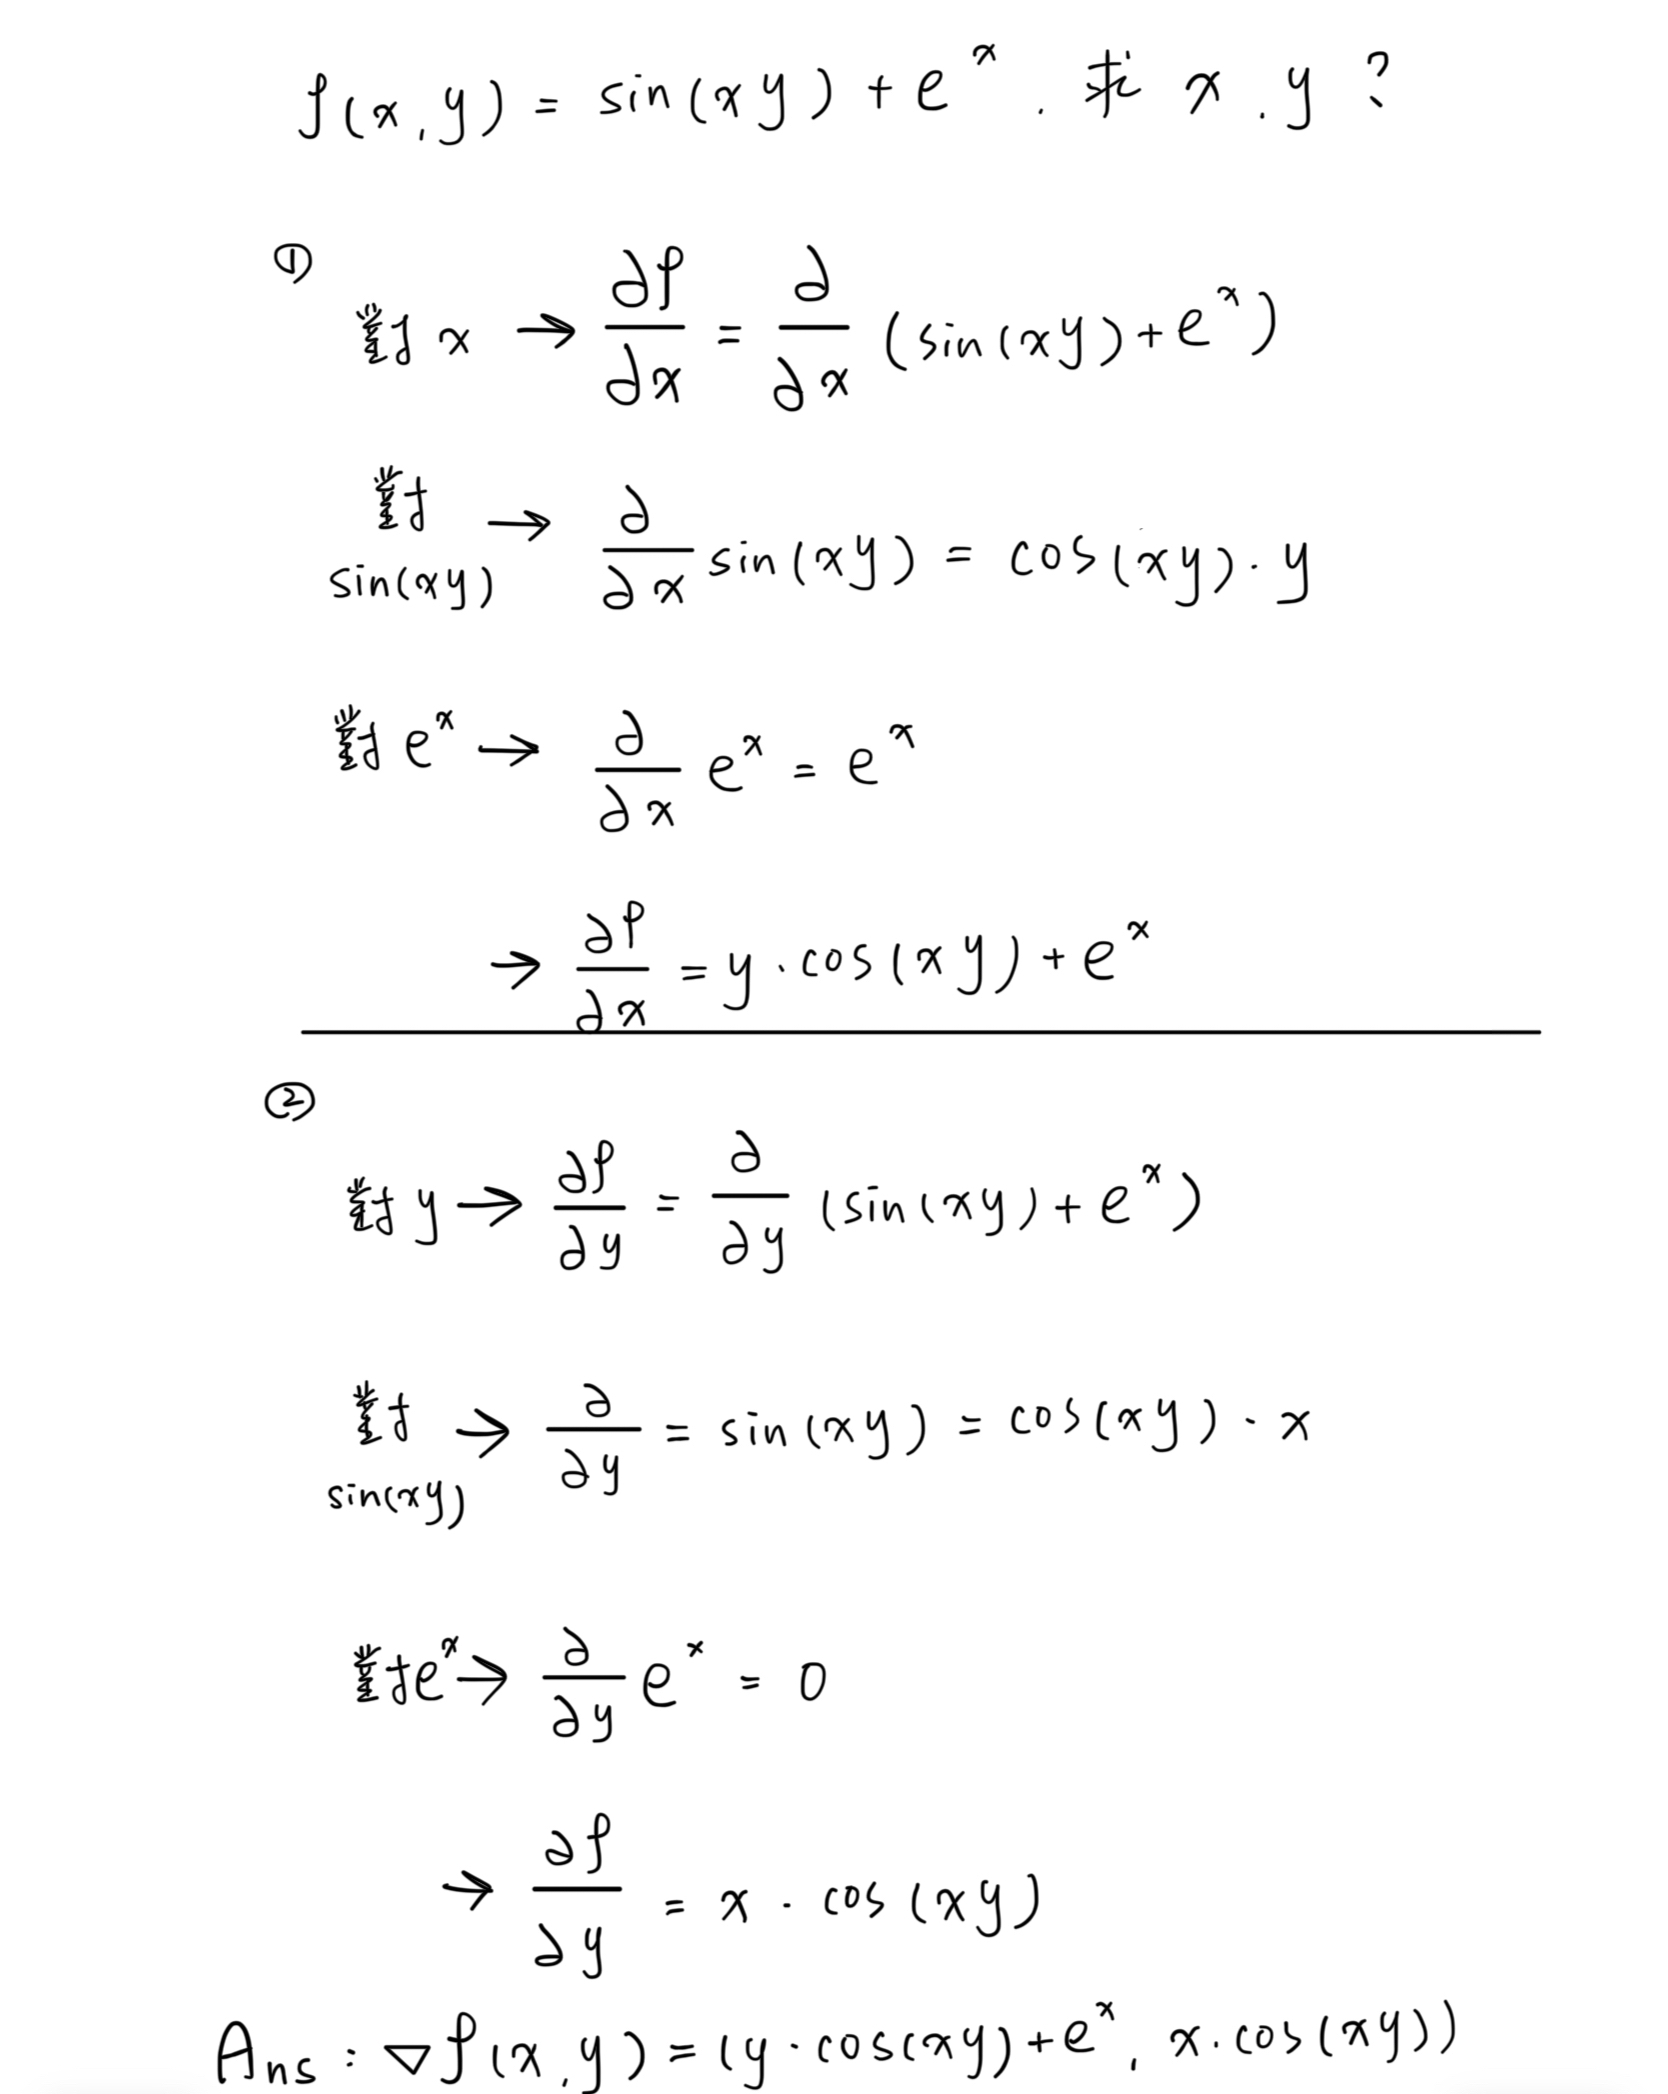 f(x,y) = sin(xy) + e^x . 求 x . y ?
①
對 x → ∂f/∂x = ∂/∂x (sin(xy)+e^x)
對 sin(xy) → ∂/∂x sin(xy) = cos(xy) · y
對 e^x → ∂/∂x e^x = e^x
→ ∂f/∂x = y · cos(xy) + e^x
②
對 y → ∂f/∂y = ∂/∂y (sin(xy) + e^x)
對 sin(xy) → ∂/∂y = sin(xy) = cos(xy) · x
對 e^x → ∂/∂y e^x = 0
→ ∂f/∂y = x · cos(xy)
Ans : ▽f(x,y) = (y · cos(xy) + e^x , x · cos(xy))